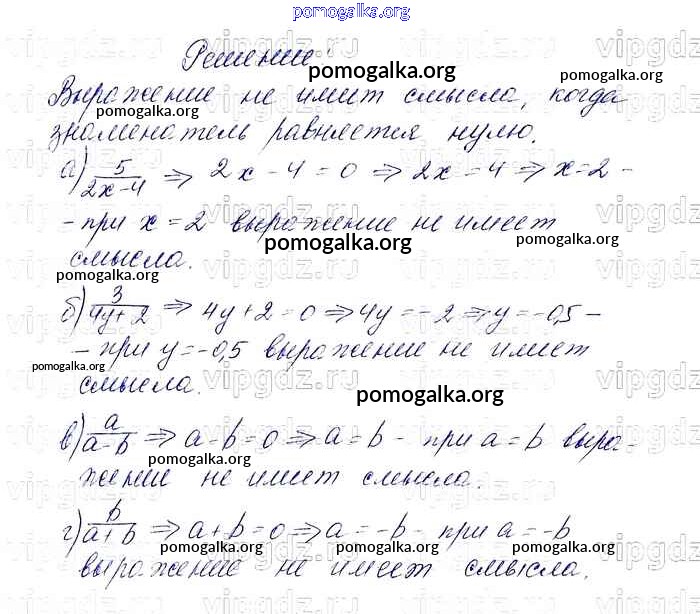 pomogalka.org
Решение:
pomogalka.org
Выражение не имеет смысла, когда
pomogalka.org
pomogalka.org
знаменатель равняется нулю.
а) 5/(2x-4) => 2x - 4 = 0 => 2x = 4 => x = 2 -
- при x = 2 выражение не имеет
pomogalka.org
pomogalka.org
смысла.
pomogalka.org
б) 3/(4y+2) => 4y + 2 = 0 => 4y = -2 => y = -0,5 -
- при y = -0,5 выражение не имеет
pomogalka.org
смысла.
pomogalka.org
в) a/(a-b) => a - b = 0 => a = b - при a = b выра-
pomogalka.org
жение не имеет смысла.
г) b/(a+b) => a + b = 0 => a = -b - при a = -b
pomogalka.org
pomogalka.org
pomogalka.org
выражение не имеет смысла.